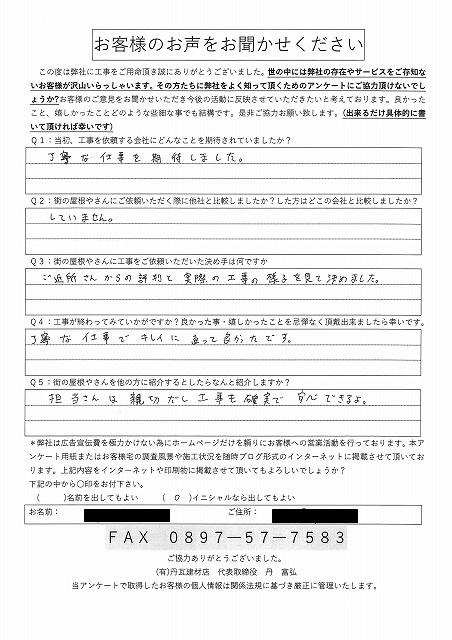 お客様のお声をお聞かせください
この度は弊社に工事をご用命頂き誠にありがとうございました。世の中には弊社の存在やサービスをご存知な
いお客様が沢山いらっしゃいます。その方たちに弊社をよく知って頂くためのアンケートにご協力頂けないでし
ょうか?お客様のご意見をお聞かせいただき今後の活動に反映させていただきたいと考えております。良かった
こと、嬉しかったことどのような些細な事でも結構です。是非ご協力お願い致します。(出来るだけ具体的に書
いて頂ければ幸いです)
Q1:当初、工事を依頼する会社にどんなことを期待されていましたか?
丁寧な仕事を期待しました。
Q2:街の屋根やさんにご依頼いただく際に他社と比較しましたか?した方はどこの会社と比較しましたか?
していません。
Q3:街の屋根やさんに工事をご依頼いただいた決め手は何ですか
ご近所さんからの評判と実際の工事の様子を見て決めました。
Q4:工事が終わってみていかがですか?良かった事・嬉しかったことを忌憚なく頂戴出来ましたら幸いです。
丁寧な仕事でキレイに直って良かたです。
Q5:街の屋根やさんを他の方に紹介するとしたらなんと紹介しますか?
担当さんは親切だし工事も確実で安心できるよ。
*弊社は広告宣伝費を極力かけない為にホームページだけを頼りにお客様への営業活動を行っております。本ア
ンケート用紙またはお客様宅の調査風景や施工状況を随時ブログ形式のインターネットに掲載させて頂いてお
ります。上記内容をインターネットや印刷物に掲載させて頂いてもよろしいでしょうか?
下記の中から〇印をお付下さい。
( )名前を出してもよい ( O )イニシャルなら出してもよい
お名前: ご住所:
FAX 0897-57-7583
ご協力ありがとうございました。
(有)丹瓦建材店 代表取締役 丹 富弘
当アンケートで取得したお客様の個人情報は関係法規に基づき厳正に管理いたします。